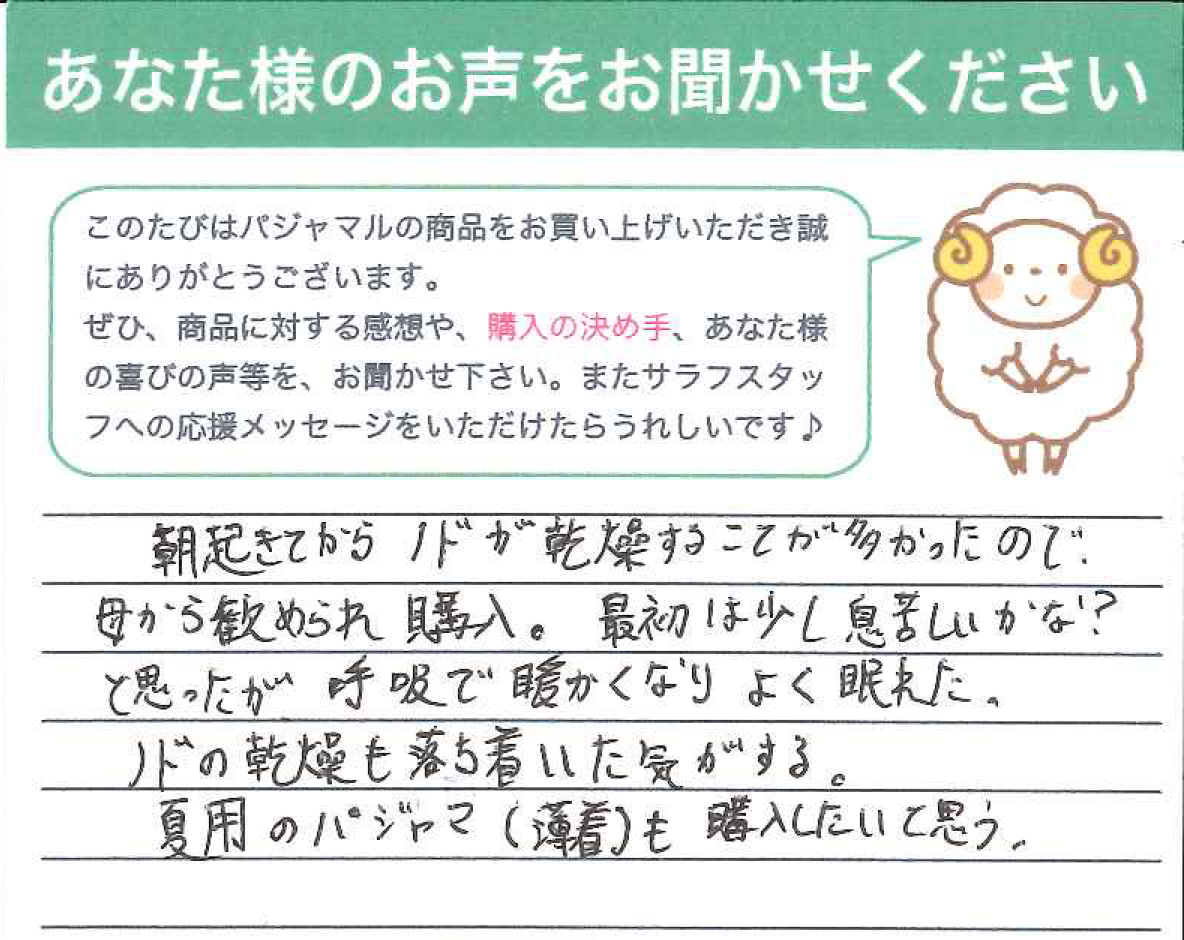 あなた様のお声をお聞かせください
このたびはパジャマルの商品をお買い上げいただき誠
にありがとうございます。
ぜひ、商品に対する感想や、購入の決め手、あなた様
の喜びの声等を、お聞かせ下さい。またサラフスタッ
フへの応援メッセージをいただけたらうれしいです♪
朝起きてから ノドが乾燥することが多かったので、
母から歓められ 購入。 最初は少し息苦しいかな?
と思ったが 呼吸で暖かくなり よく眠れた。
ノドの乾燥も落ち着いた気がする。
夏用のパジャマ (薄着)も 購入したいと思う。